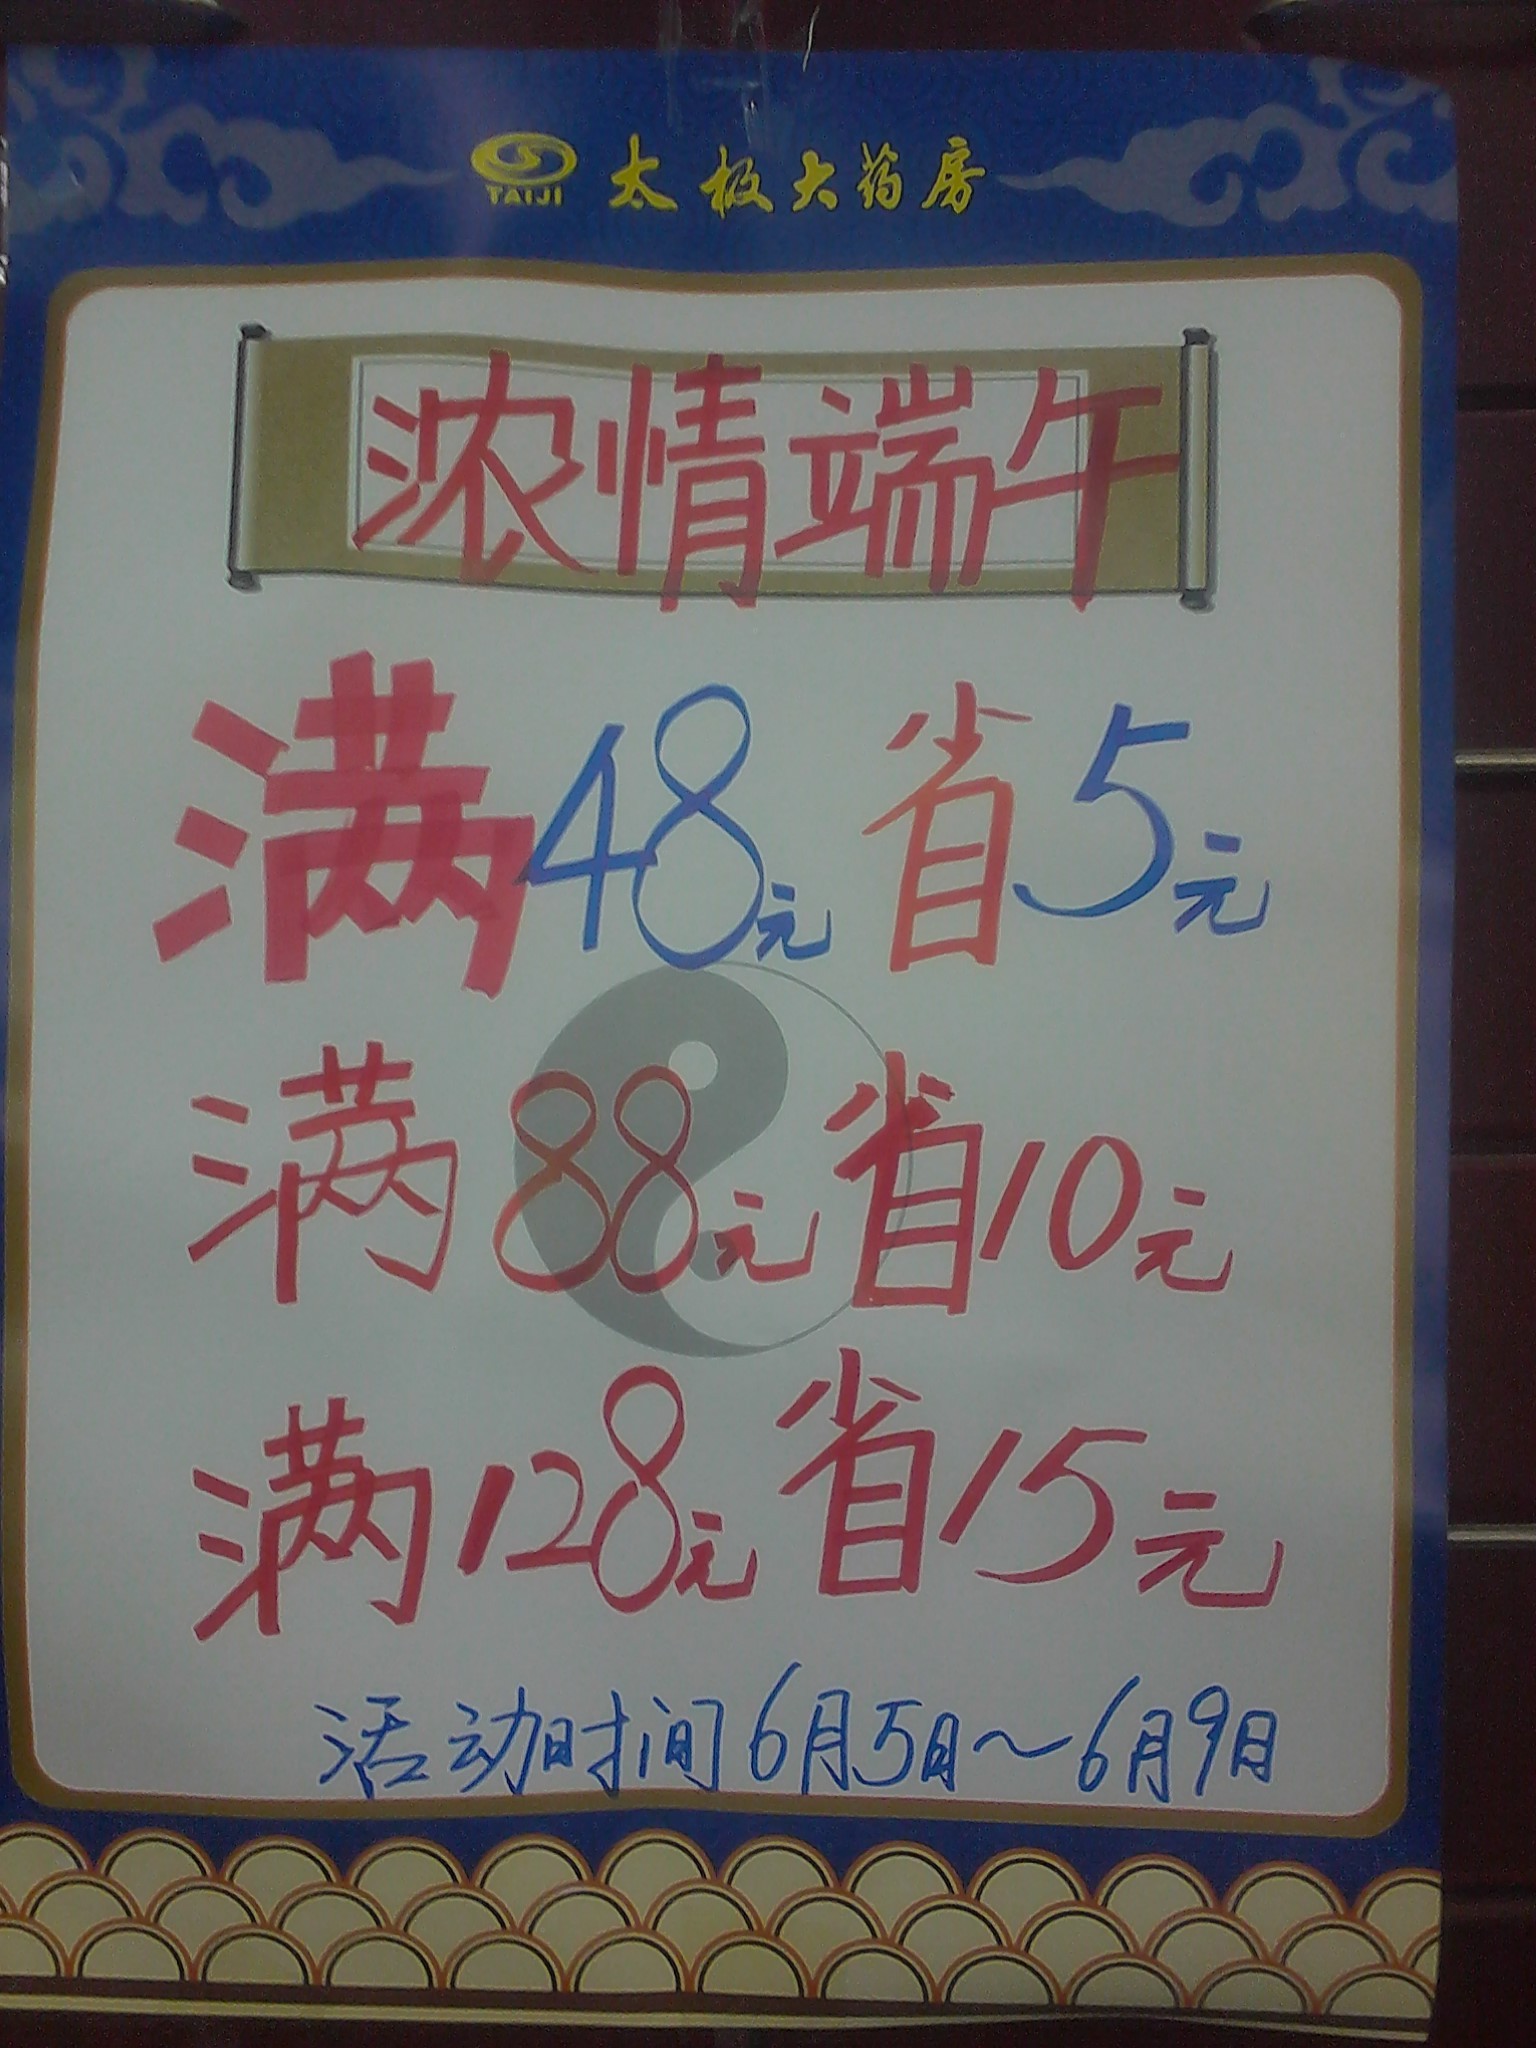 TAIJI 太极大药房
浓情端午
满48元 省5元
满88元省10元
满128元省15元
活动时间6月5日~6月9日